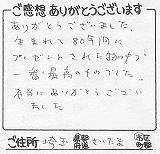 ご感想 ありがとうございます
ありがとうございました。
生まれて80年間に
プレゼントされた物の中で
一番最高のものでした。
本当にありがとうござい
ました
ご住所 埼玉 都道府県 さいたま 市区町郡